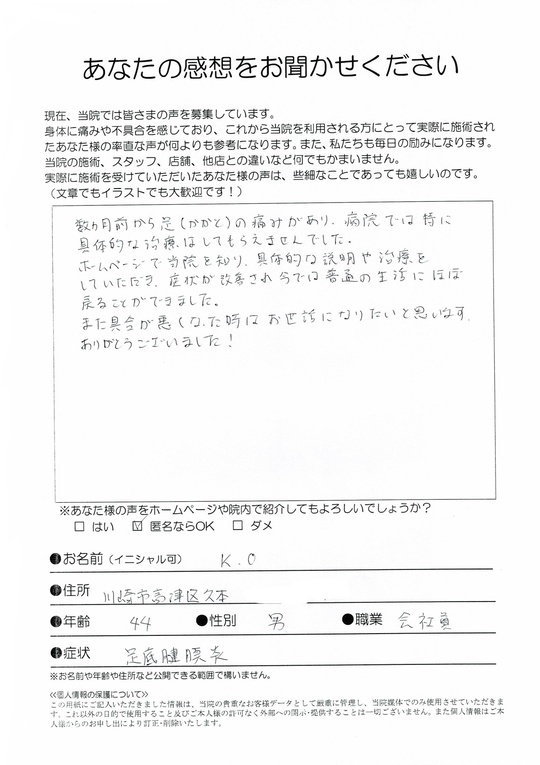 あなたの感想をお聞かせください
現在、当院では皆さまの声を募集しています。
身体に痛みや不具合を感じており、これから当院を利用される方にとって実際に施術され
たあなた様の率直な声が何よりも参考になります。また、私たちも毎日の励みになります。
当院の施術、スタッフ、店舗、他店との違いなど何でもかまいません。
実際に施術を受けていただいたあなた様の声は、些細なことであっても嬉しいのです。
（文章でもイラストでも大歓迎です！）
数ヵ月前から足(かかと)の痛みがあり、病院では特に
具体的な治療はしてもらえませんでした。
ホームページで当院を知り、具体的な説明や治療を
していただき、症状が改善され今では普通の生活にほぼ
戻ることができました。
また具合が悪くなった時はお世話になりたいと思います。
ありがとうございました！
※あなた様の声をホームページや院内で紹介してもよろしいでしょうか？
□ はい ☑ 匿名ならOK □ ダメ
●お名前（イニシャル可） K.O
●住所 川崎市高津区久本
●年齢 44 ●性別 男 ●職業 会社員
●症状 足底腱膜炎
※お名前や年齢や住所など公開できる範囲で構いません。
≪個人情報の保護について≫
この用紙にご記入いただきました情報は、当院の貴重なお客様データとして厳重に管理し、当院媒体でのみ使用させていただきま
す。これ以外の目的で使用すること及びご本人様の許可なく外部への開示・提供することは一切ございません。また個人情報はご本
人様からのお申し出により訂正・削除いたします。